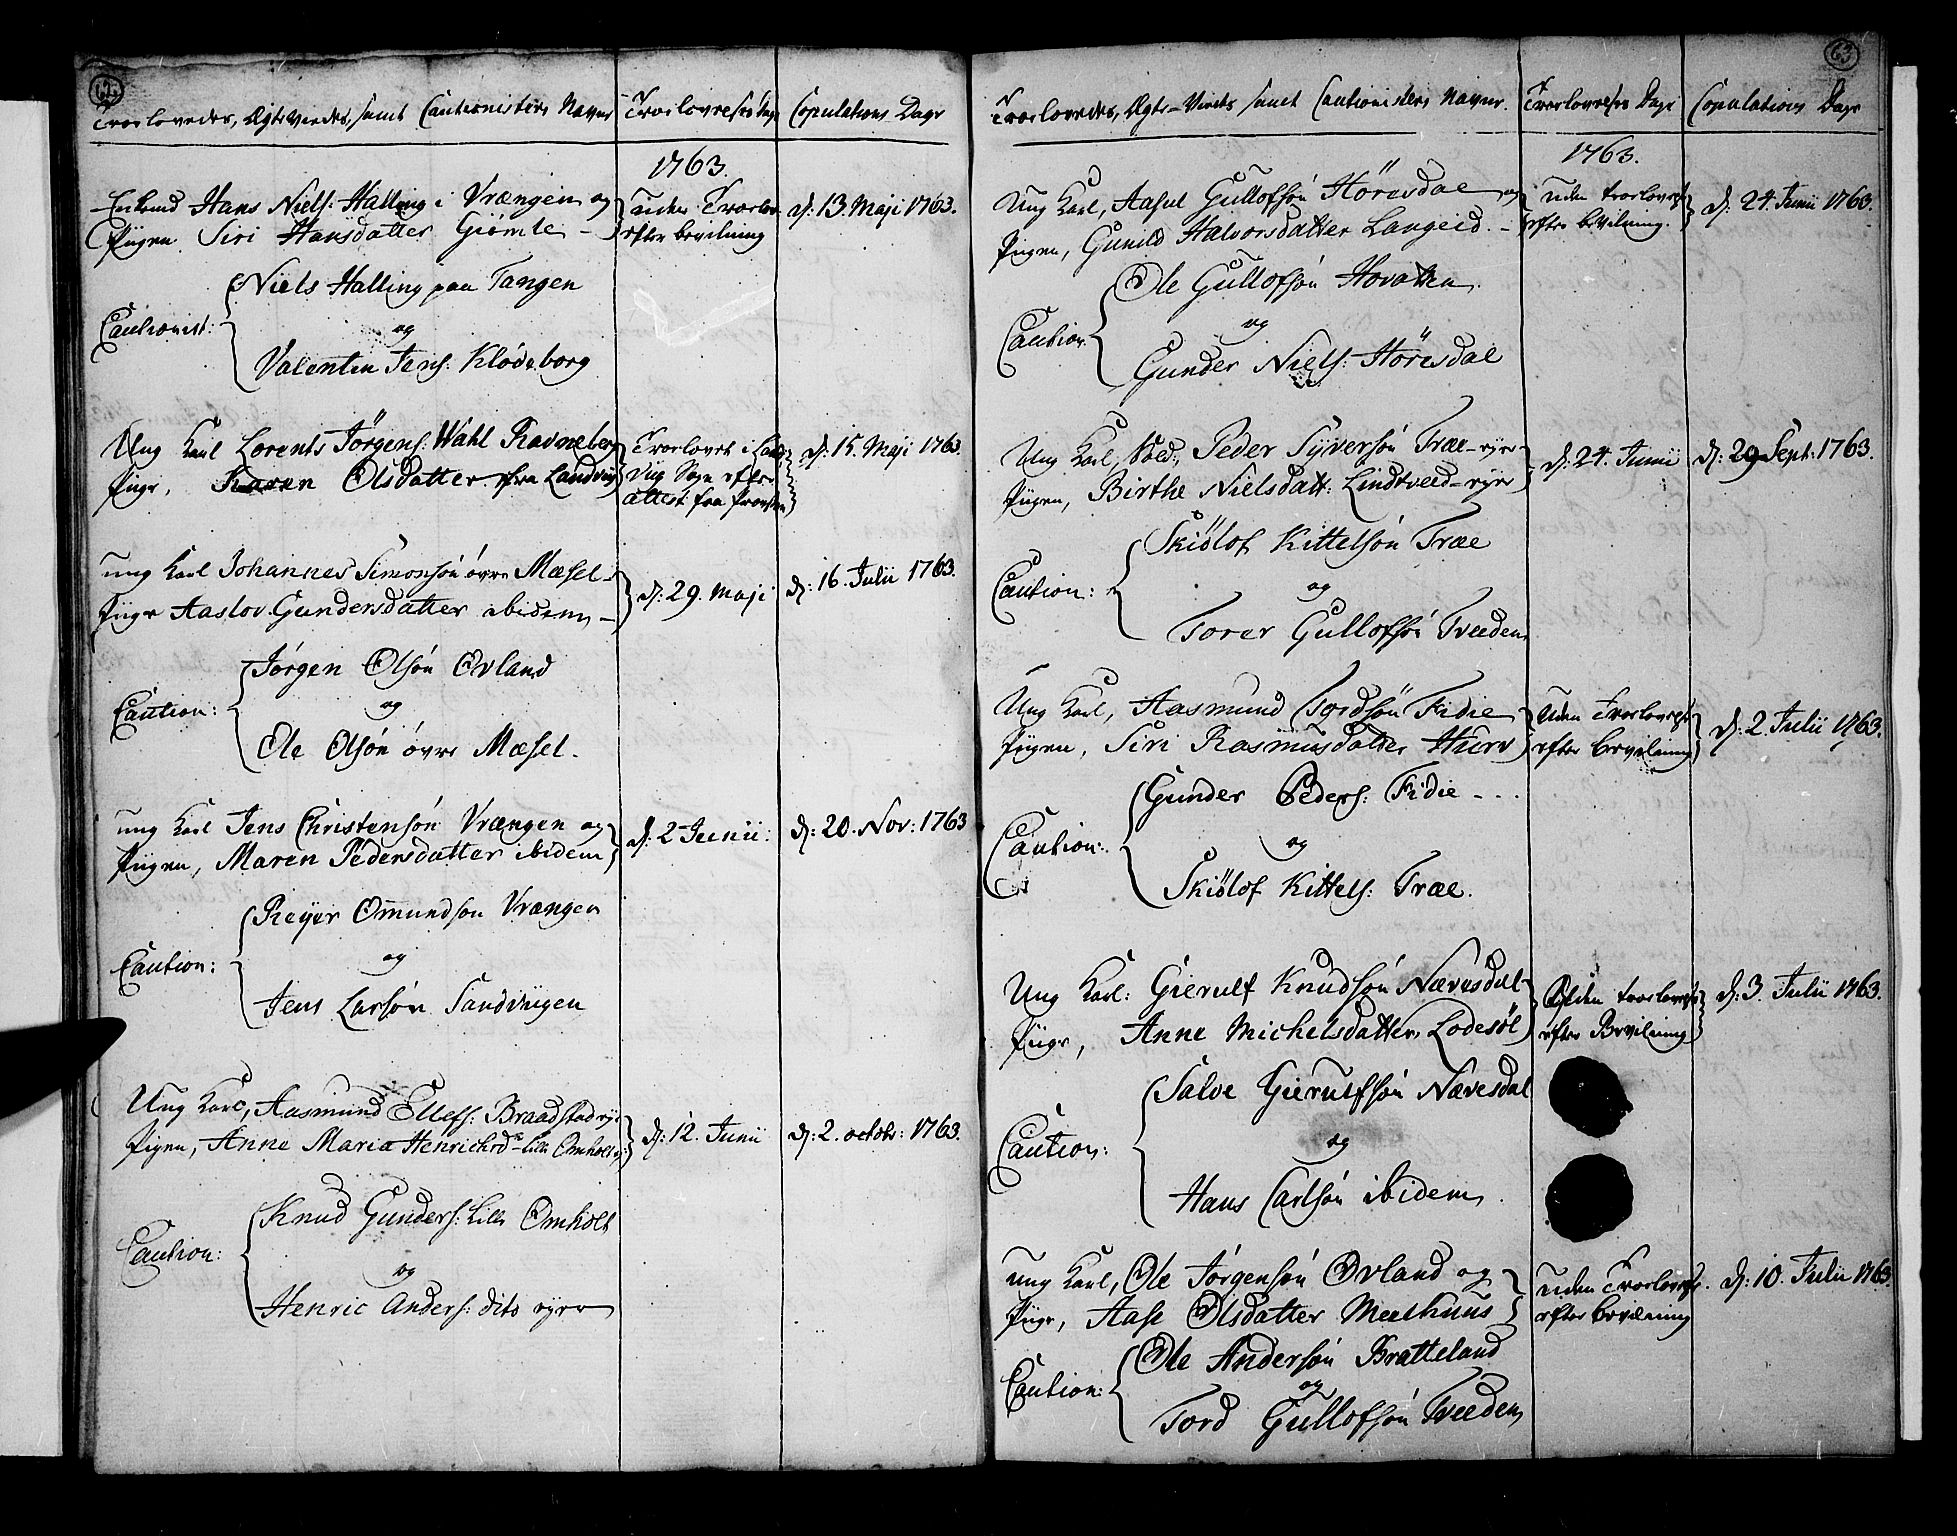 62.
Troelovedes, Ægteviedes, samt Cautionisters Navne
Troelovelses Dage
Copulations Dage
1763.
Enkemd Hans Niels: Halling i Vrængen og
Pigen Siri Hansdatter Giømle
uden Troelov
efter bevilning
d: 13. Maji 1763.
Niels Halling paa Tangen
Cautionist:
og
Valentin Jens: Klødeborg
Ung Karl Lorents Jörgens: Wahl Ravneberg
Pige, Karen Olsdatter fra Landvig
Troelovet i Land
vig Sogn efter
attest fra Provsten
d: 15. Maji 1763.
ung Karl Johannes Simonsón övre Mæsel
Pige Aaslov Gundersdatter ibidem
d: 29. Maji
d: 16. Julii 1763.
Jórgen Olsón Ovland
Caution:
og
Ole Olsón óvre Mæsel.
ung Karl Jens Christensón Vrængen og
Pigen, Maren Pedersdatter ibidem
d: 2 Junii:
d: 20. Nov: 1763
Reyer Omundsøn Vrængen
Caution:
og
Jens Larsón Sandviigen
Ung Karl, Aasmund Ellefs: Braadstad
Pigen, Anne Maria Henrichsd: Lille Omholt
d: 12. Junii
d: 2. octobr: 1763.
Knud Gunders: Lille Omholt
Caution:
og
Henric Anders: dito
63
Troelovedes, Ægte-Viedes samt Cautionisters Navne.
Troelovelses Dage
Copulations Dage
1763.
Ung Karl, Aasul Gullofsón Höresdal og
Pigen, Gunild Halvorsdatter Langeid.
uden troelovelse
efter bevilning.
d: 24. Junii 1763.
Ole Gullofsón Hovatten
Caution.
og
Gunder Niels: Höresdal
Ung Karl, Sold: Peder Syversón Træe
Pigen, Birthe Nielsdatt: Lindtveed
d: 24. Junii
d: 29 Sept: 1763.
Skiölof Kittelsón Træe
Caution:
og
Torer Gullofsón Tveeden
Ung Karl, Aasmund Tordsön Fidie
Pigen, Siri Rasmusdatter Hurv
uden Troelovelse
efter bevilning
d: 2. Julii 1763.
Gunder Peders: Fidie
Caution:
og
Skiölof Kittels: Træe.
Ung Karl: Gierulf Knudsón Nævesdal
Pige, Anne Michelsdatter Lodesöl
uden troelovelse
efter Bevilning
d: 3. Julii 1763.
Salve Gierulfsón Nævesdal
Caution:
og
Hans Carlsón ibidem.
ung Karl, Ole Jórgensón Ovland og
Pige, Aase Olsdatter Mælhuus
uden Troelovelse
efter bevilning
d: 10. Julii 1763
Ole Andersón Bratteland
Caution:
og
Tord Gullofsón Tveeden